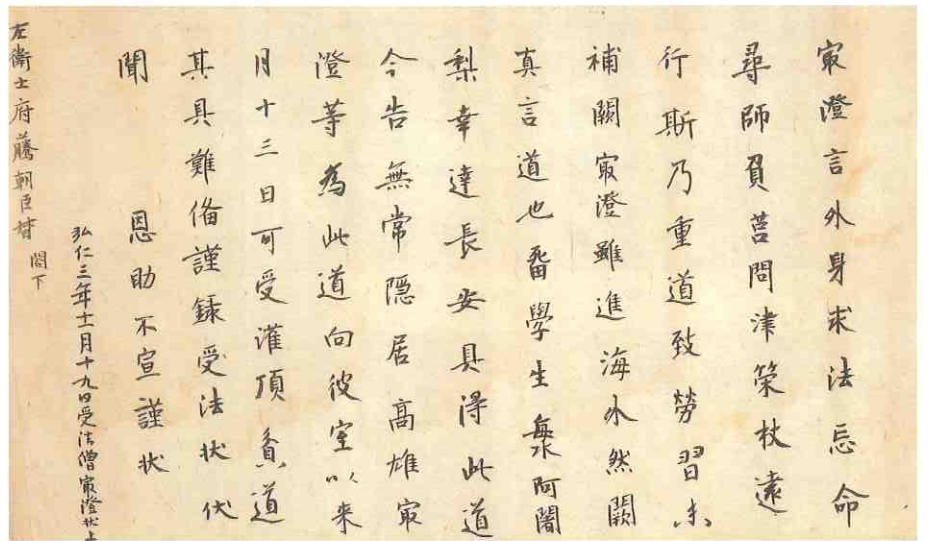 㝡澄言外身求法忘命
尋師負莒問津策杖遠
行斯乃重道致勞習未
補闕㝡澄雖進海外然闕
真言道也畱學生海阿闍
梨幸達長安具得此道
今告無常隱居高雄㝡
澄等為此道向彼室以来
月十三日可受灌頂貧道
其具難備謹録受法状 伏
聞 恩助不宣謹状
弘仁三年十一月十九日受法僧㝡澄状上
左衞士府藤朝臣督 閤下